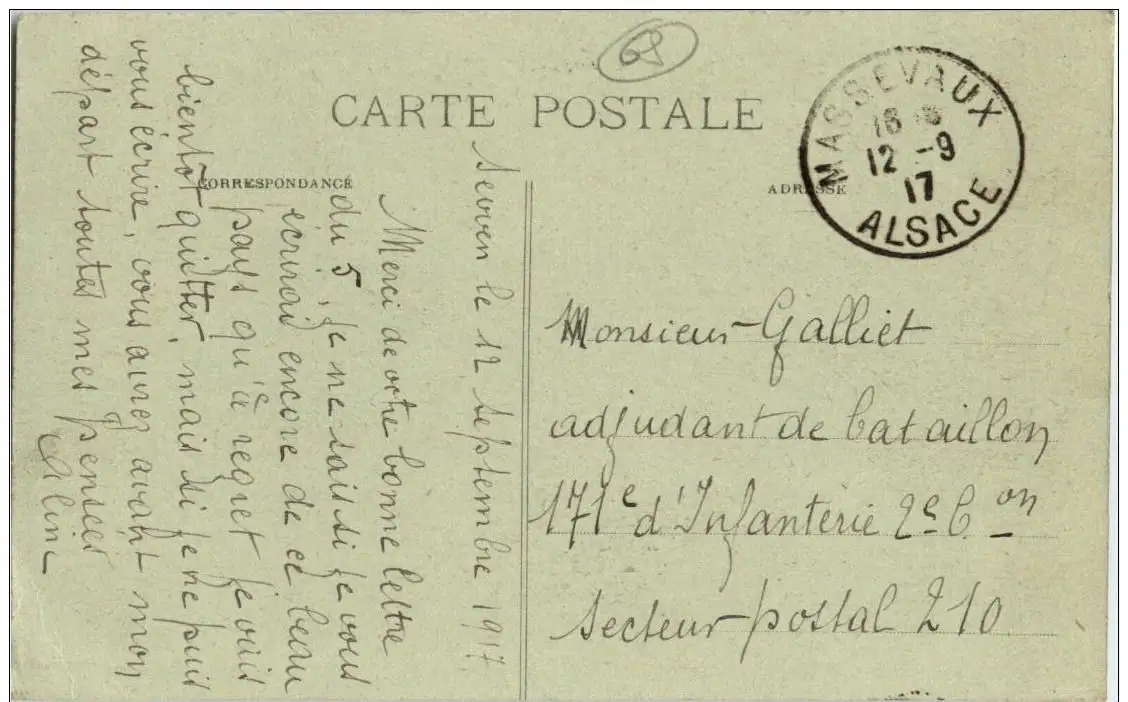 68
CARTE POSTALE
CORRESPONDANCE
ADRESSE
MASSEVAUX
18
12 -9
17
ALSACE
Sewen le 12 septembre 1917
Merci de votre bonne lettre
du 5, je ne sais si je vous
écrirai encore de ce beau
pays qu'à regret je vais
bientôt quitter, mais si je ne puis
vous écrire, vous aurez avant mon
départ toutes mes pensées
Aline
Monsieur Galliet
adjudant de bataillon
171e d'Infanterie 2e Bon
Secteur postal 210